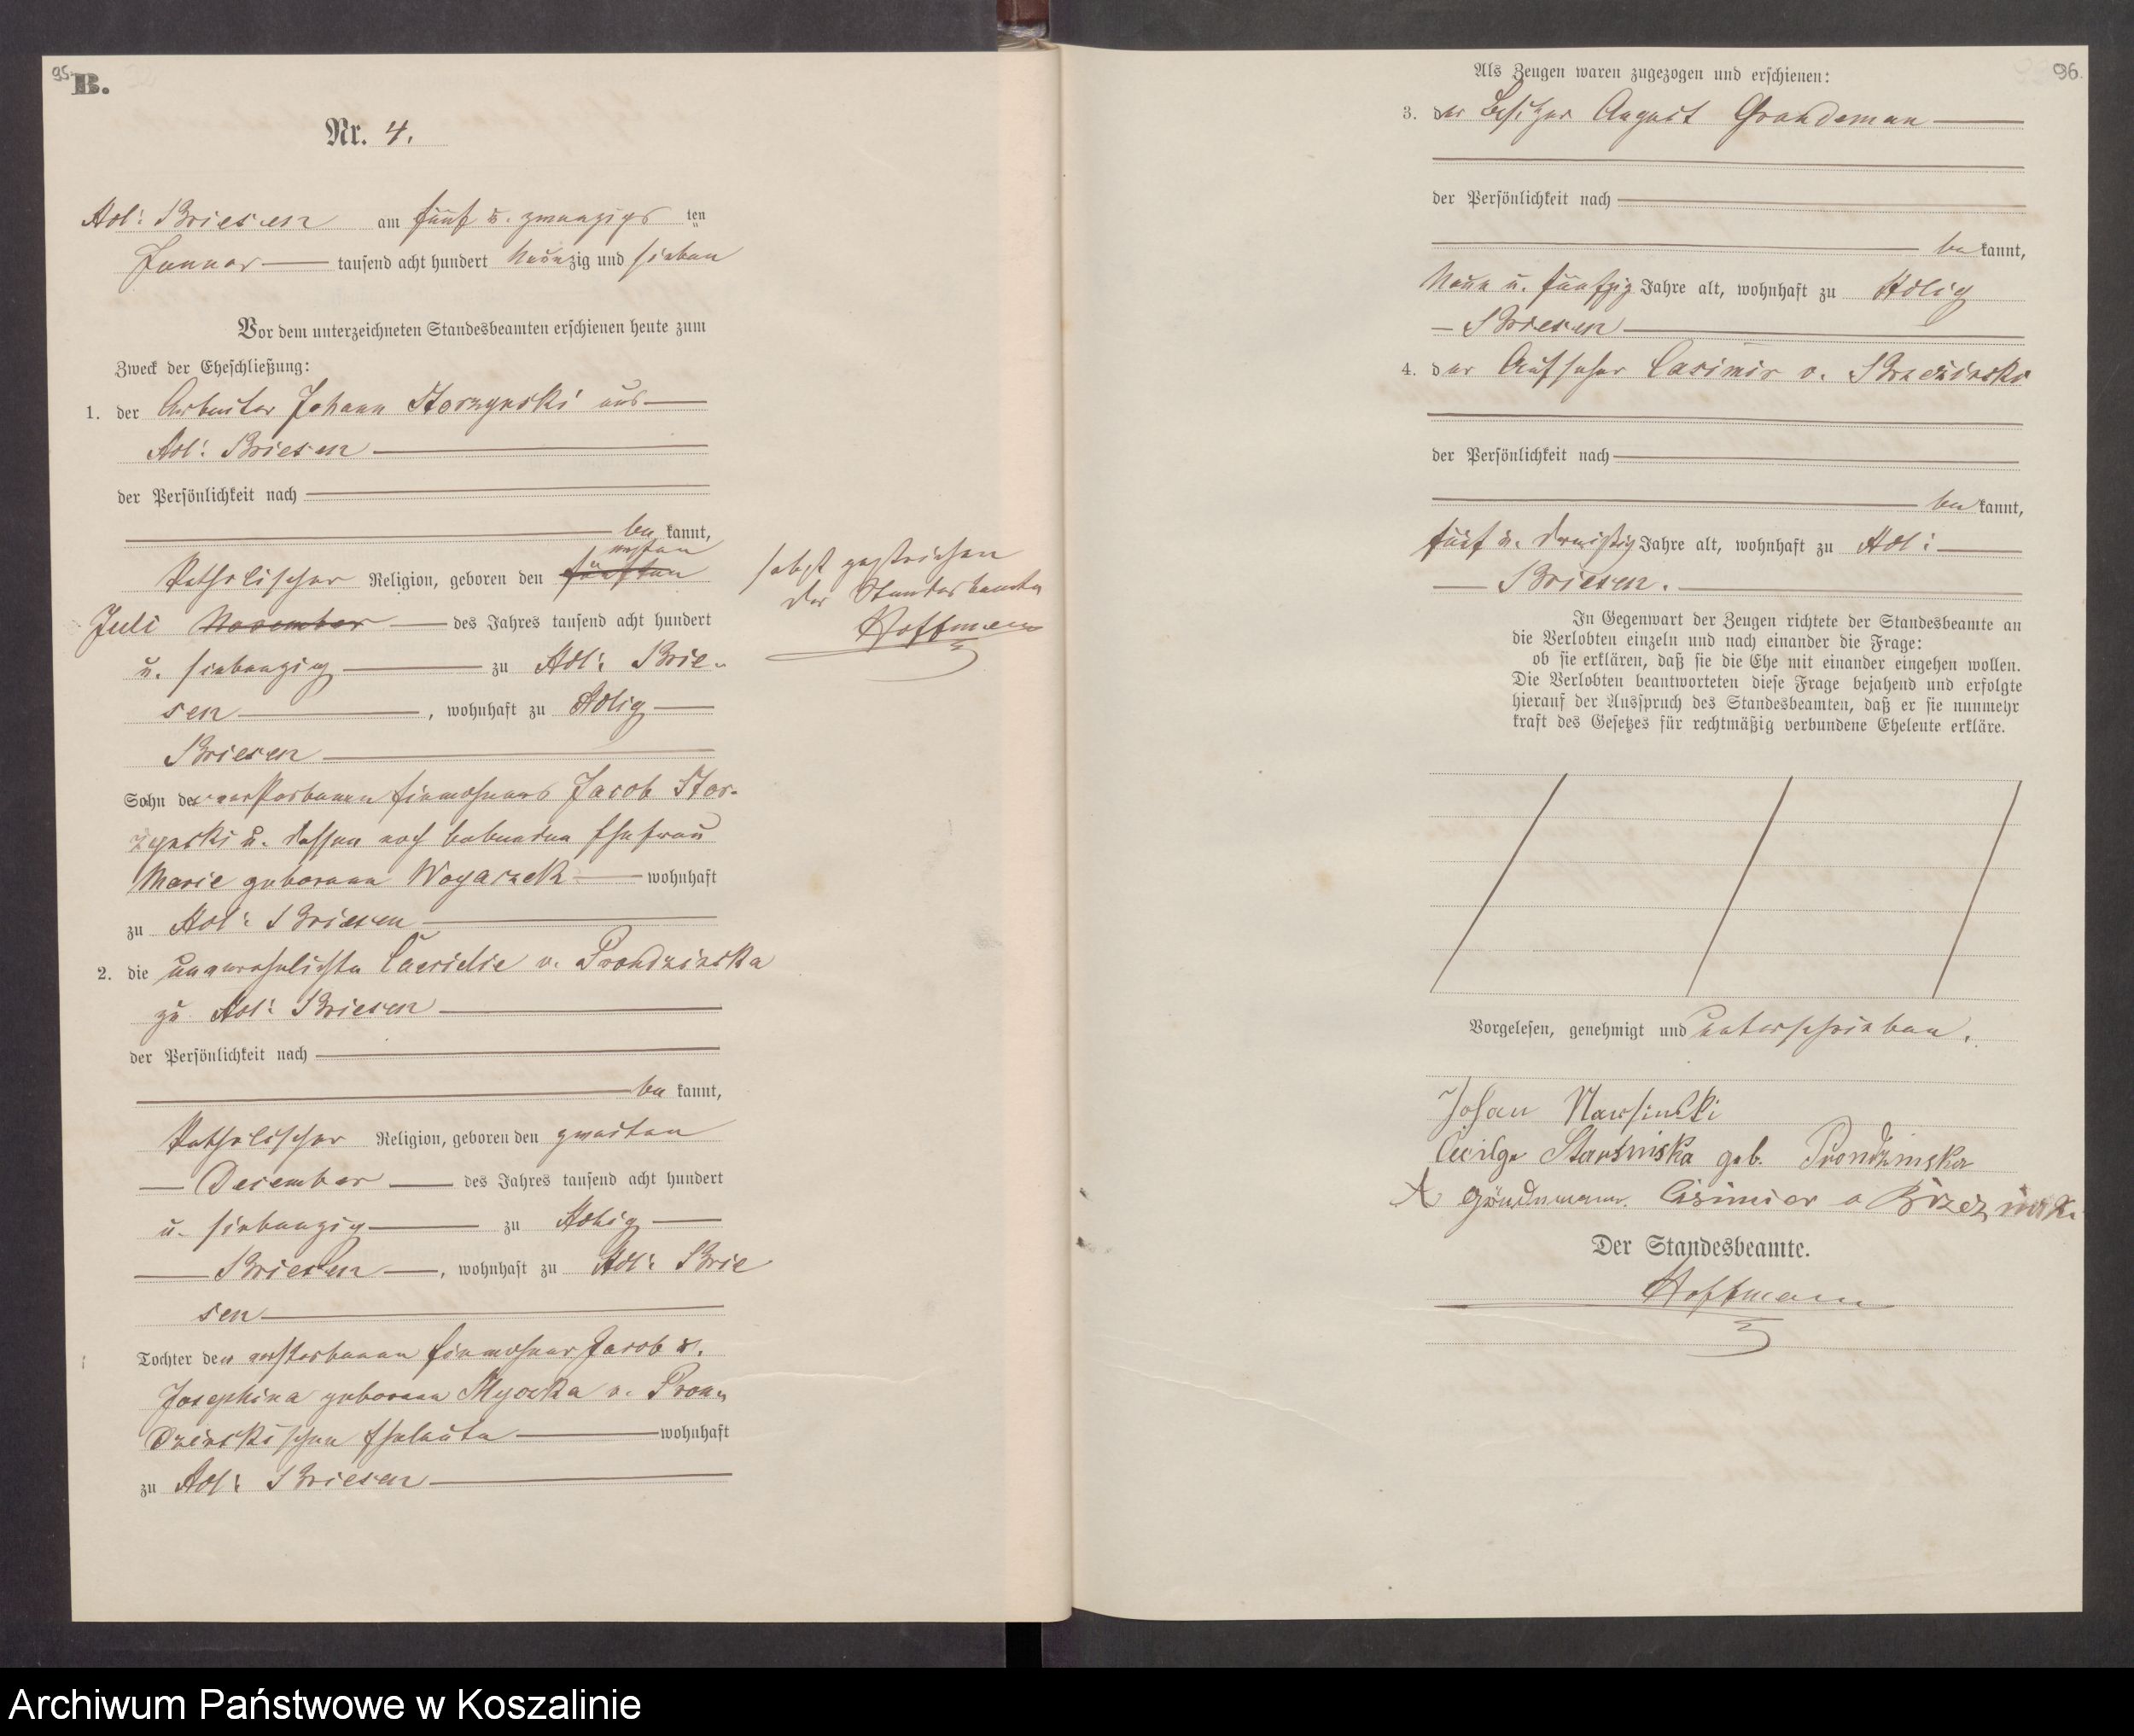 95.
B.
Nr. 4.
Adl: Briesen am fünf u. zwanzigs ten
Januar tausend acht hundert neunzig und sieben
Vor dem unterzeichneten Standesbeamten erschienen heute zum
Zweck der Eheschließung:
1. der Arbeiter Johann aus
Adl: Briesen
der Persönlichkeit nach
be kannt,
ersten
katholischer Religion, geboren den fünften
Juli November des Jahres tausend acht hundert
u. siebenzig zu Adl: Brie-
sen, wohnhaft zu Adlig
Briesen
Sohn des verstorbenen Einwohners Jacob Stor-
zynski u. dessen noch lebenden Ehefrau
Marie geborenen wohnhaft
zu Adl: Briesen
selbst gestrichen
der Standesbeamte
Hoffmann
2. die unverehelichte Caecielie v. Prondzinska
zu Adl: Briesen
der Persönlichkeit nach
be kannt,
katholischer Religion, geboren den zweiten
December des Jahres tausend acht hundert
u. siebenzig zu Adlig
Briesen, wohnhaft zu Adl: Brie
sen
Tochter der verstorbenen Einwohner Jacob u.
Josephina geborenen v. Pron-
dzinskischen Eheleute wohnhaft
zu Adl: Briesen
96.
Als Zeugen waren zugezogen und erschienen:
3. der Besitzer August Grondeman
der Persönlichkeit nach
be kannt,
neun u. fünfzig Jahre alt, wohnhaft zu Adlig
Briesen
4. der Aufseher Casimir v. Brzezinski
der Persönlichkeit nach
be kannt,
fünf u. dreißig Jahre alt, wohnhaft zu Adl:
Briesen.
In Gegenwart der Zeugen richtete der Standesbeamte an
die Verlobten einzeln und nach einander die Frage:
ob sie erklären, daß sie die Ehe mit einander eingehen wollen.
Die Verlobten beantworteten diese Frage bejahend und erfolgte
hierauf der Ausspruch des Standesbeamten, daß er sie nunmehr
kraft des Gesetzes für rechtmäßig verbundene Eheleute erkläre.
Vorgelesen, genehmigt und unterschrieben.
Johan
Starsinska geb. Prondzinska
A Gröndemann. Casimier v Brzezinski
Der Standesbeamte.
Hoffmann
Archiwum Państwowe w Koszalinie